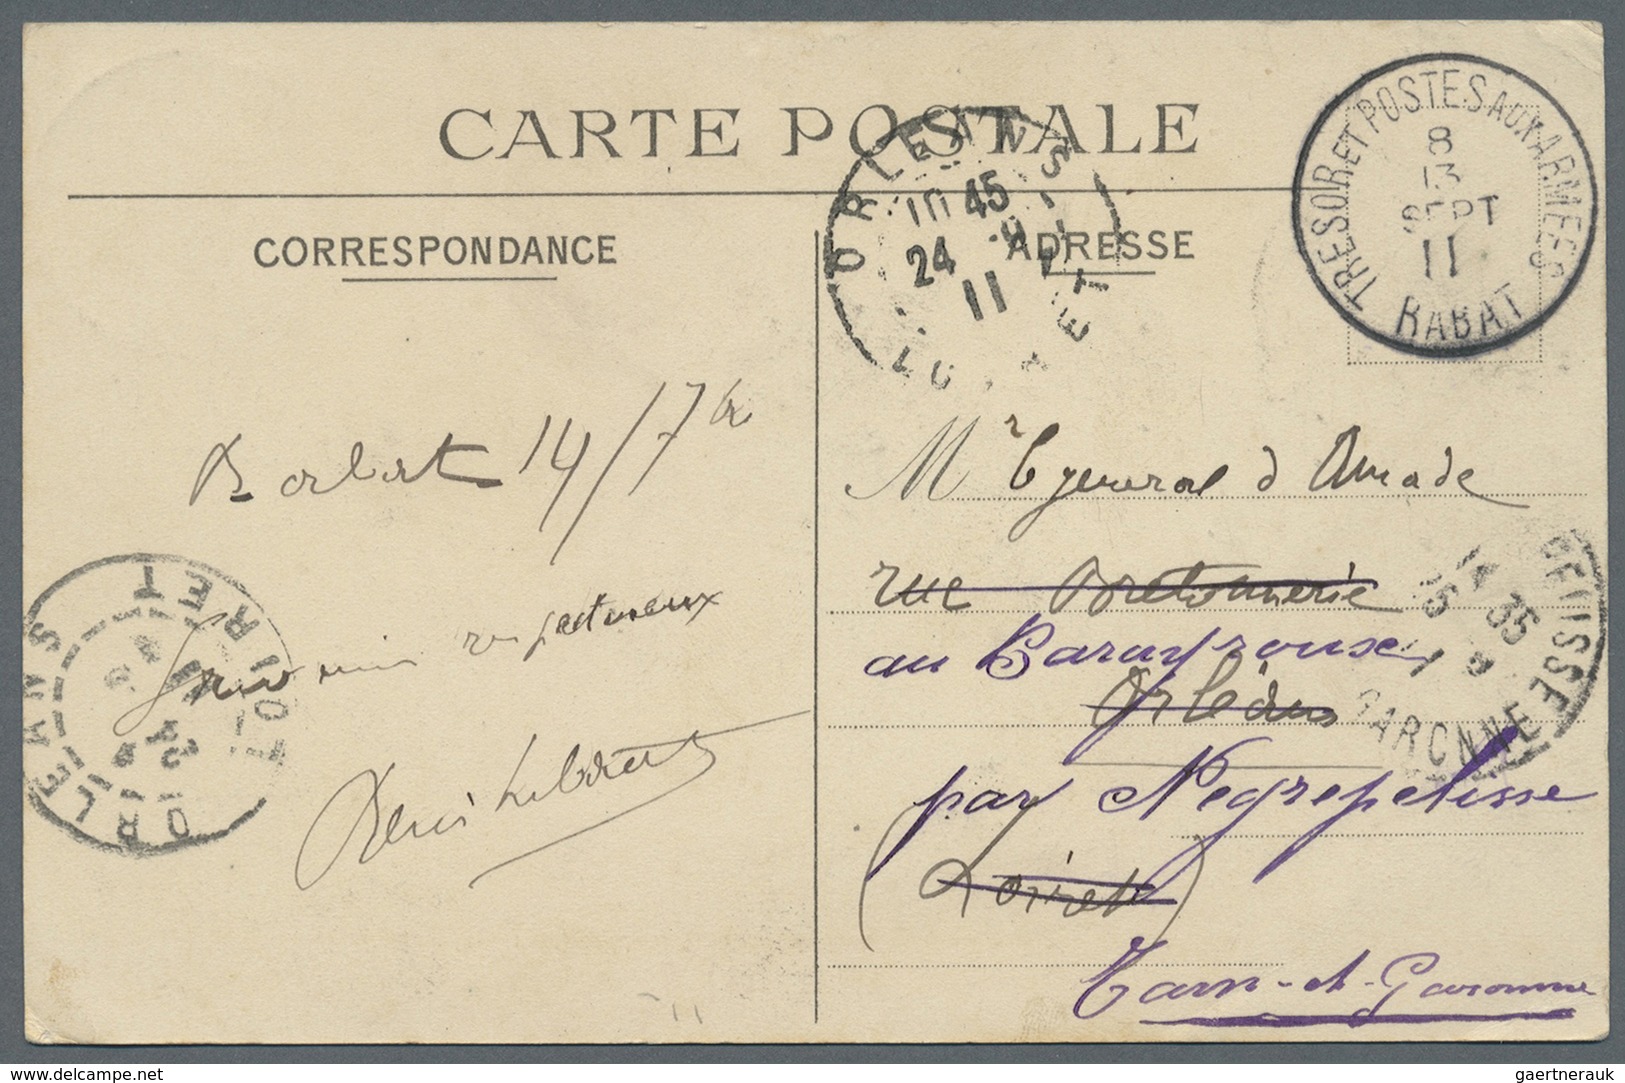 CARTE POSTALE
CORRESPONDANCE
ADRESSE
TRESOR ET POSTES AUX ARMEES
8
13
SEPT
11
RABAT
ORLEANS
10 45
24 -9
11
LOIRET
Rabat 14/7bre
Souvenir respectueux
Mr le général d'Amade
rue Bretonnerie
au Carayroux
Orléans
par Negrepelisse
(Loiret)
Tarn-et-Garonne
14 35
GARONNE
ORLEANS
LOIRET
24
delcampe.net
gaertnerauk